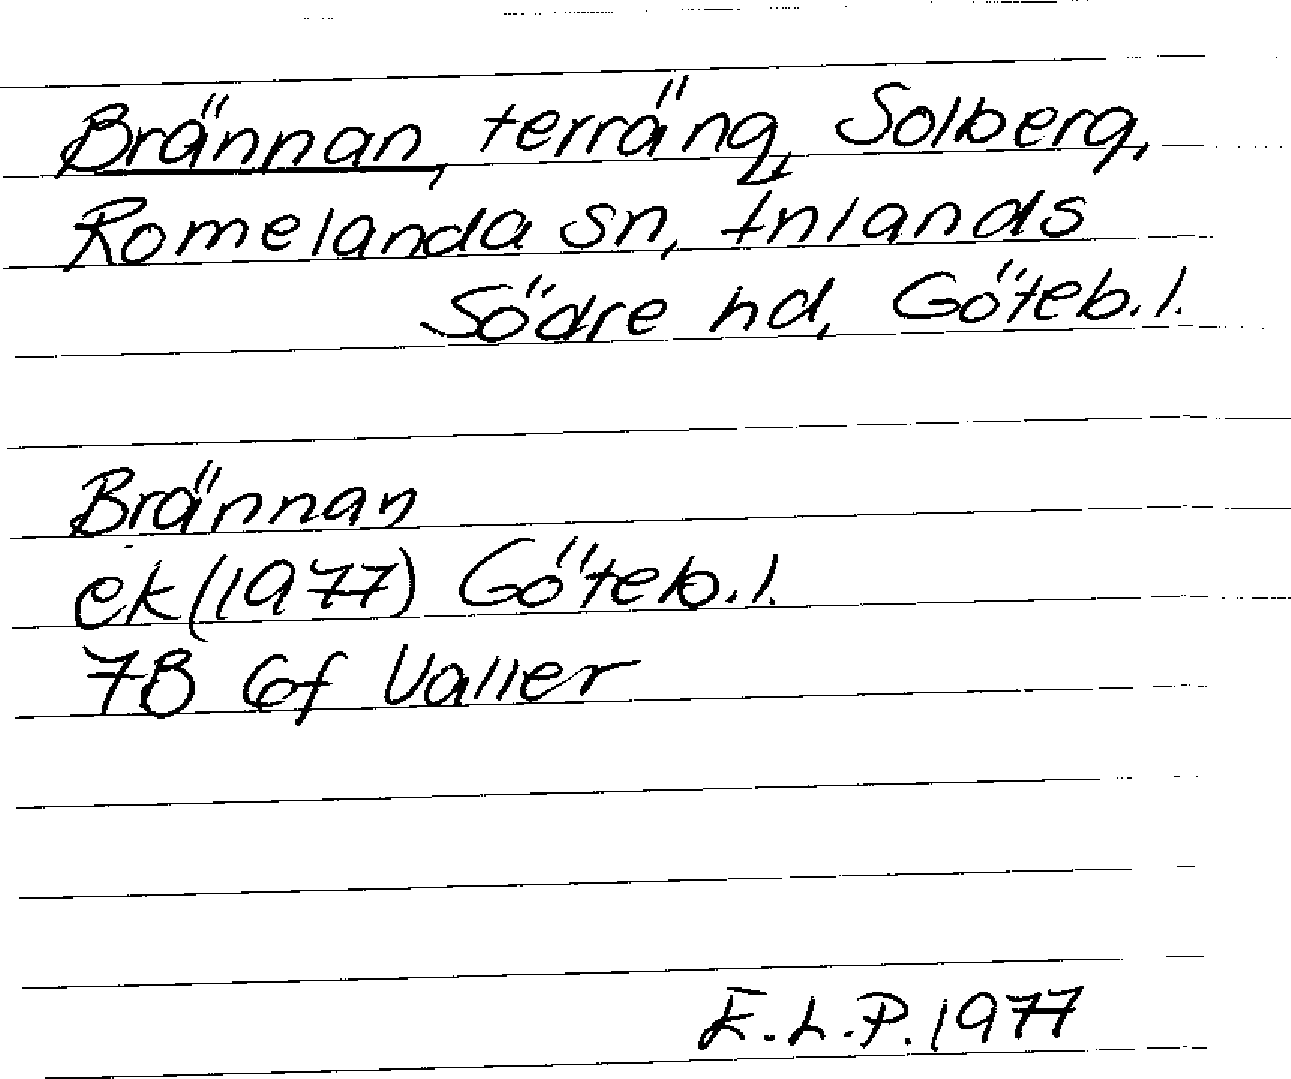 Brännan, terräng, Solberg,
Romelanda sn, Inlands
Södre hd, Göteb. l.
Brännan
ek (1977) Göteb. l.
7B 6f Valler
E. L. P. 1977